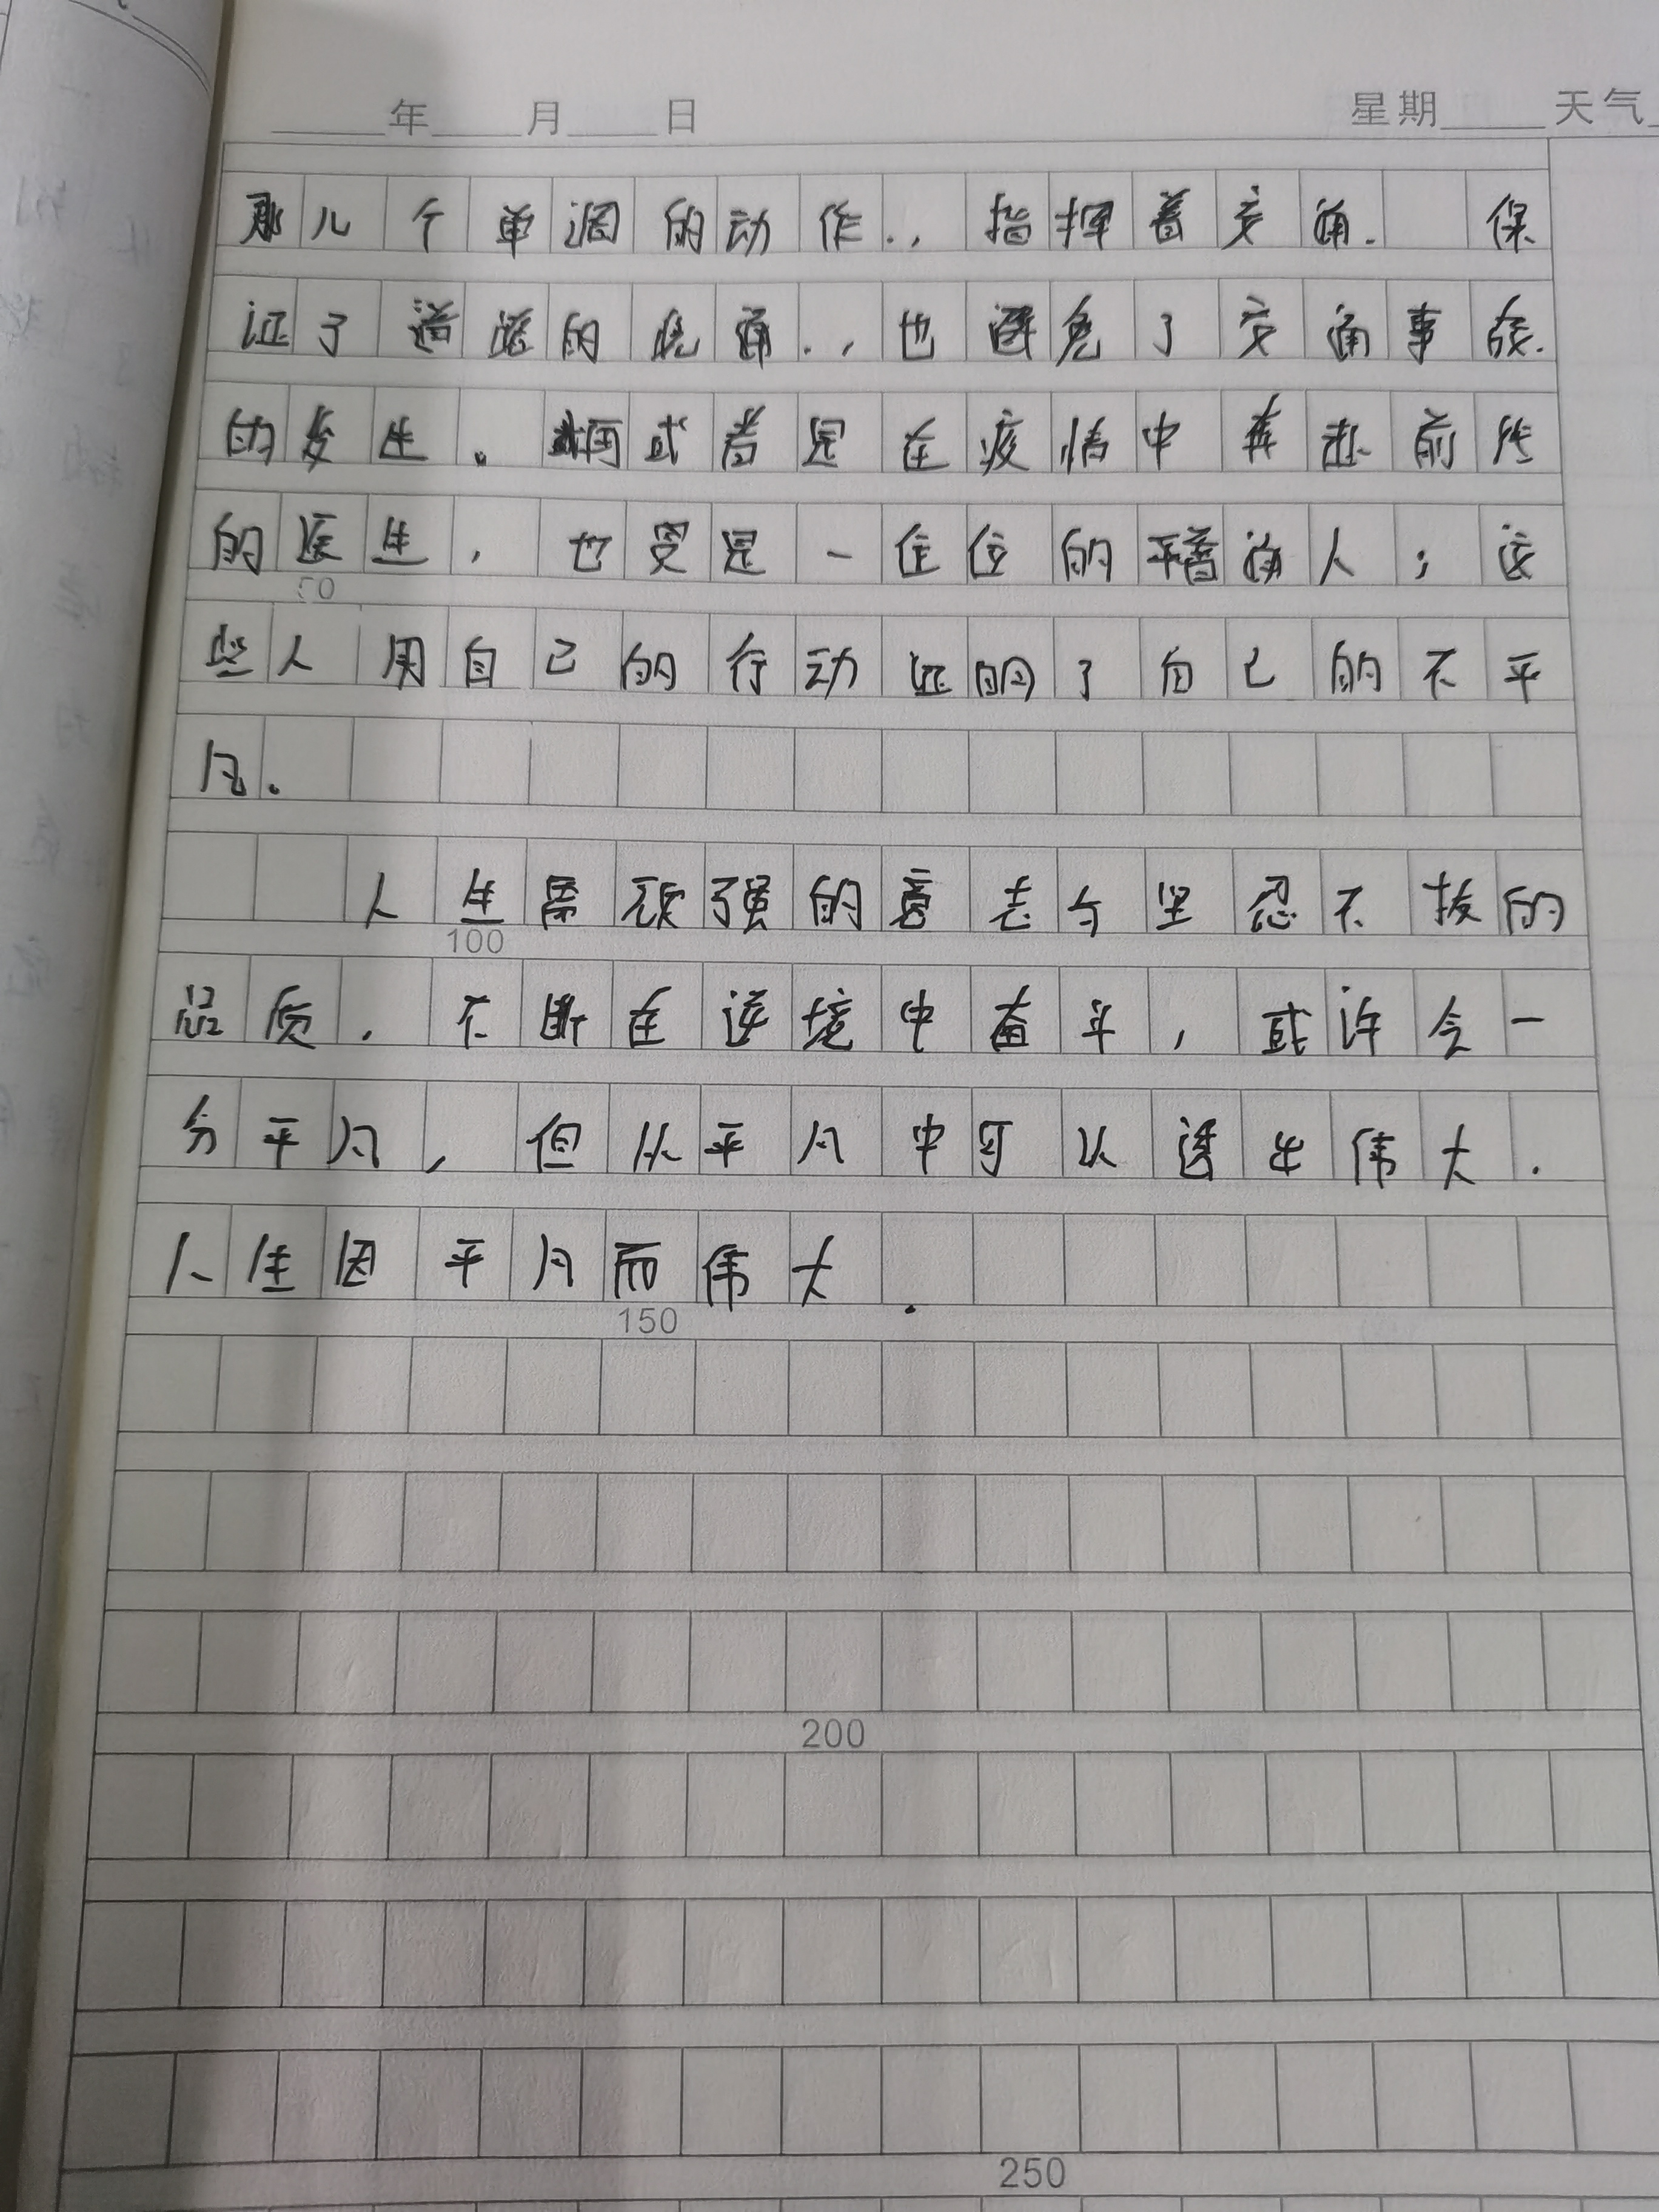 年 月 日 星期 天气
那几个单调的动作.，指挥着交通. 保
证了道路的畅通.，也避免了交通事故.
的发生。或者是在疫情中奔赴前线
的医生，也是一位位的普通人；这
些人用自己的行动证明了自己的不平
凡.
人生需顽强的意志与坚忍不拔的
50
品质，不断在逆境中奋斗，或许会一
100
分平凡，但从平凡中可以透出伟大.
人生因平凡而伟大.
150
200
250